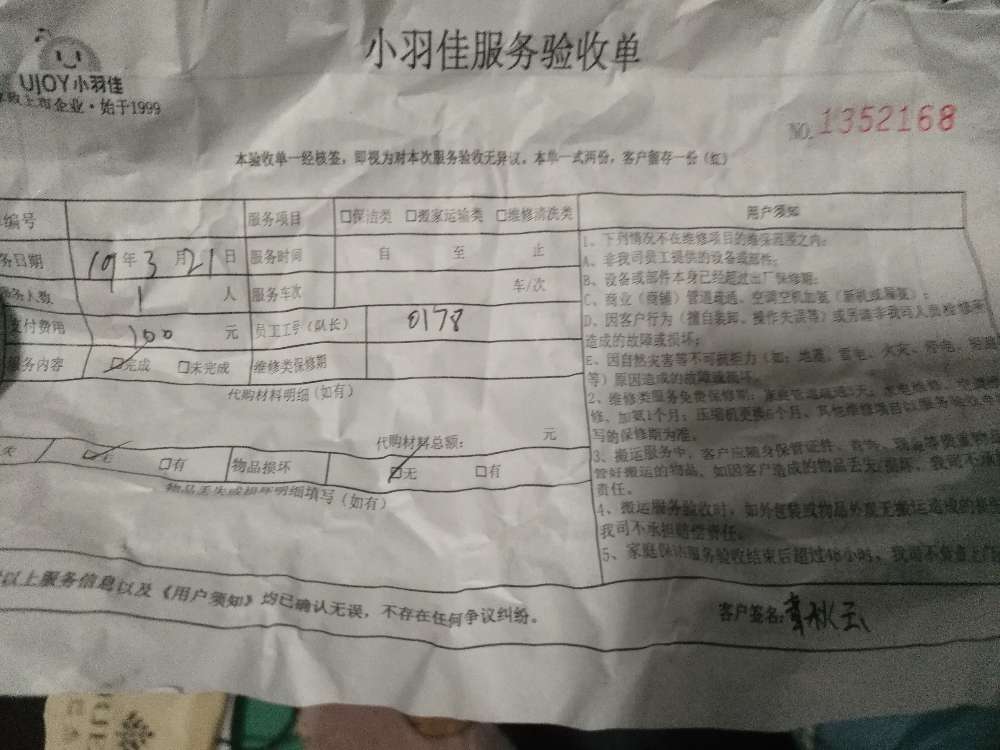 小羽佳服务验收单
UJOY小羽佳
上市企业·始于1999
NO.1352168
本验收单一经核签，即视为对本次服务验收无异议。本单一式两份，客户留存一份（红）
编号 服务项目 □保洁类 □搬家运输类 □维修清洗类 用户须知
务日期 19年3月21日 服务时间 自 至 止
务人数 1 人 服务车次 车/次
支付费用 100 元 员工工号（队长） 0178
服务内容 ☑完成 □未完成 维修类保修期
代购材料明细（如有）
代购材料总额： 元
失 ☑无 □有 物品损坏 ☑无 □有
物品丢失或损坏明细填写（如有）
1、下列情况不在维修项目的维保范围之内：
A、非我司员工提供的设备或部件；
B、设备或部件本身已经超过出厂保修期；
C、商业（商铺）管道疏通、空调空机加氨（新机或漏氨）；
D、因客户行为（擅自装卸、操作失误等）或另请非我司人员检修来
造成的故障或损坏；
E、因自然灾害等不可抵拒力（如：地震、雷电、火灾、停电、
等）原因造成的故障或损坏。
2、维修类服务免费保修期：家庭管道疏通3天；水电维修、空调维
修、加氨1个月；压缩机更换6个月、其他维修项目以服务验收单
写的保修期为准。
3、搬运服务中，客户应随身保管证件、首饰、现金等贵重物品
管好搬运的物品，如因客户造成的物品丢失/损坏，我司不承担
责任。
4、搬运服务验收时，如外包装或物品外观无搬运造成的损
我司不承担赔偿责任。
5、家庭保洁服务验收结束后超过48小时，我司不负责上门
以上服务信息以及《用户须知》均已确认无误，不存在任何争议纠纷。
客户签名：章秋云